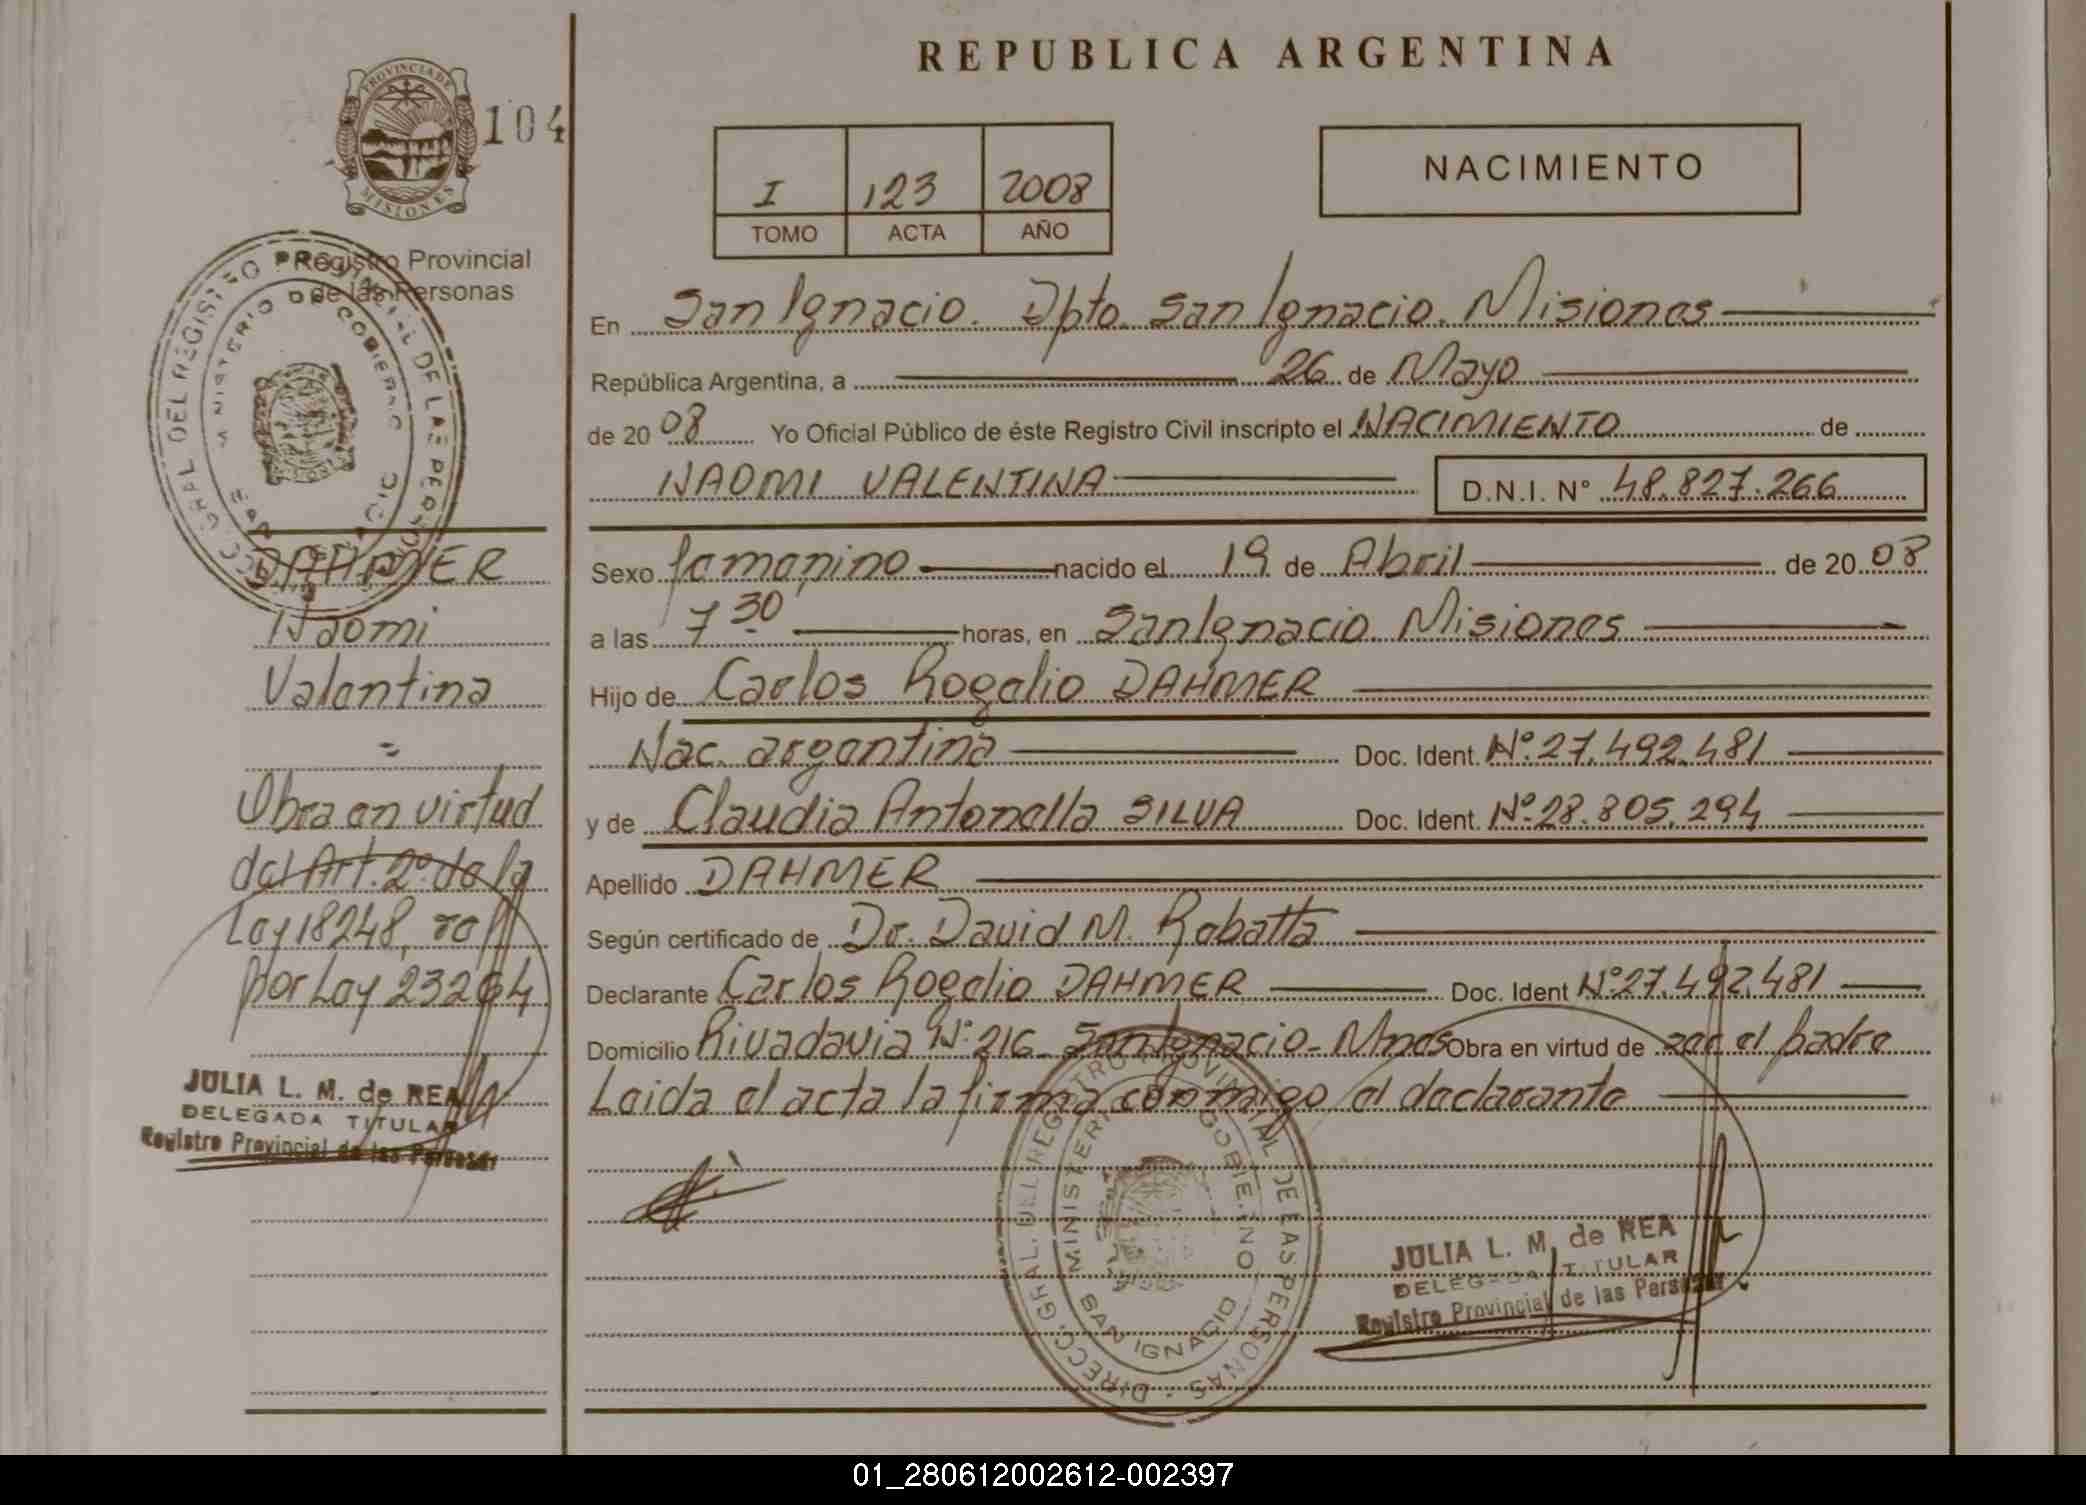 REPUBLICA ARGENTINA
PROVINCIA DE MISIONES
104
I 123 2008
TOMO ACTA AÑO
NACIMIENTO
Registro Provincial
de las Personas
DIRECC. GRAL. DEL REGISTRO PROVINCIAL DE LAS PERSONAS
MINISTERIO DE GOBIERNO
DAHMER
Naomi
Valentina
=
Obra en virtud
del Art. 2º de la
Ley 18248, ref
por Ley 23264
JULIA L. M. de REA
DELEGADA TITULAR
Registro Provincial de las Personas
En San Ignacio. Dpto. San Ignacio. Misiones
República Argentina, a 26 de Mayo
de 2008 Yo Oficial Público de éste Registro Civil inscripto el NACIMIENTO de
NAOMI VALENTINA D.N.I. N° 48.827.266
Sexo femenino nacido el 19 de Abril de 2008
a las 7 30 horas, en San Ignacio Misiones
Hijo de Carlos Rogelio DAHMER
Nac. argentina Doc. Ident. Nº 27.492.481
y de Claudia Antonella SILVA Doc. Ident. Nº 28.805.294
Apellido DAHMER
Según certificado de Dr. David M. Robatta
Declarante Carlos Rogelio DAHMER Doc. Ident Nº 27.492.481
Domicilio Rivadavia Nº 216 San Ignacio - Mnes Obra en virtud de rec el padre
Leida el acta la firma conmigo el declarante
DIRECC. GRAL. DEL REGISTRO PROVINCIAL DE LAS PERSONAS
MINISTERIO GOBIERNO
SAN IGNACIO
JULIA L. M. de REA
DELEGADA TITULAR
Registro Provincial de las Personas
01_280612002612-002397